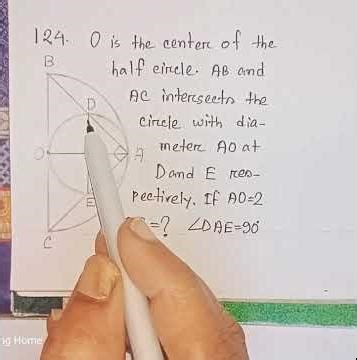 124. O is the center of the
half circle. AB and
AC intersects the
circle with dia-
meter AO at
D and E res-
pectively. If AO=2
=? ∠DAE=90°
B
D
O
A
E
C
ng Home